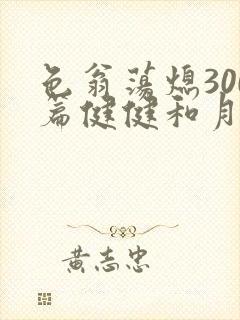 色翁荡熄300
篇健健和月
黄志忠